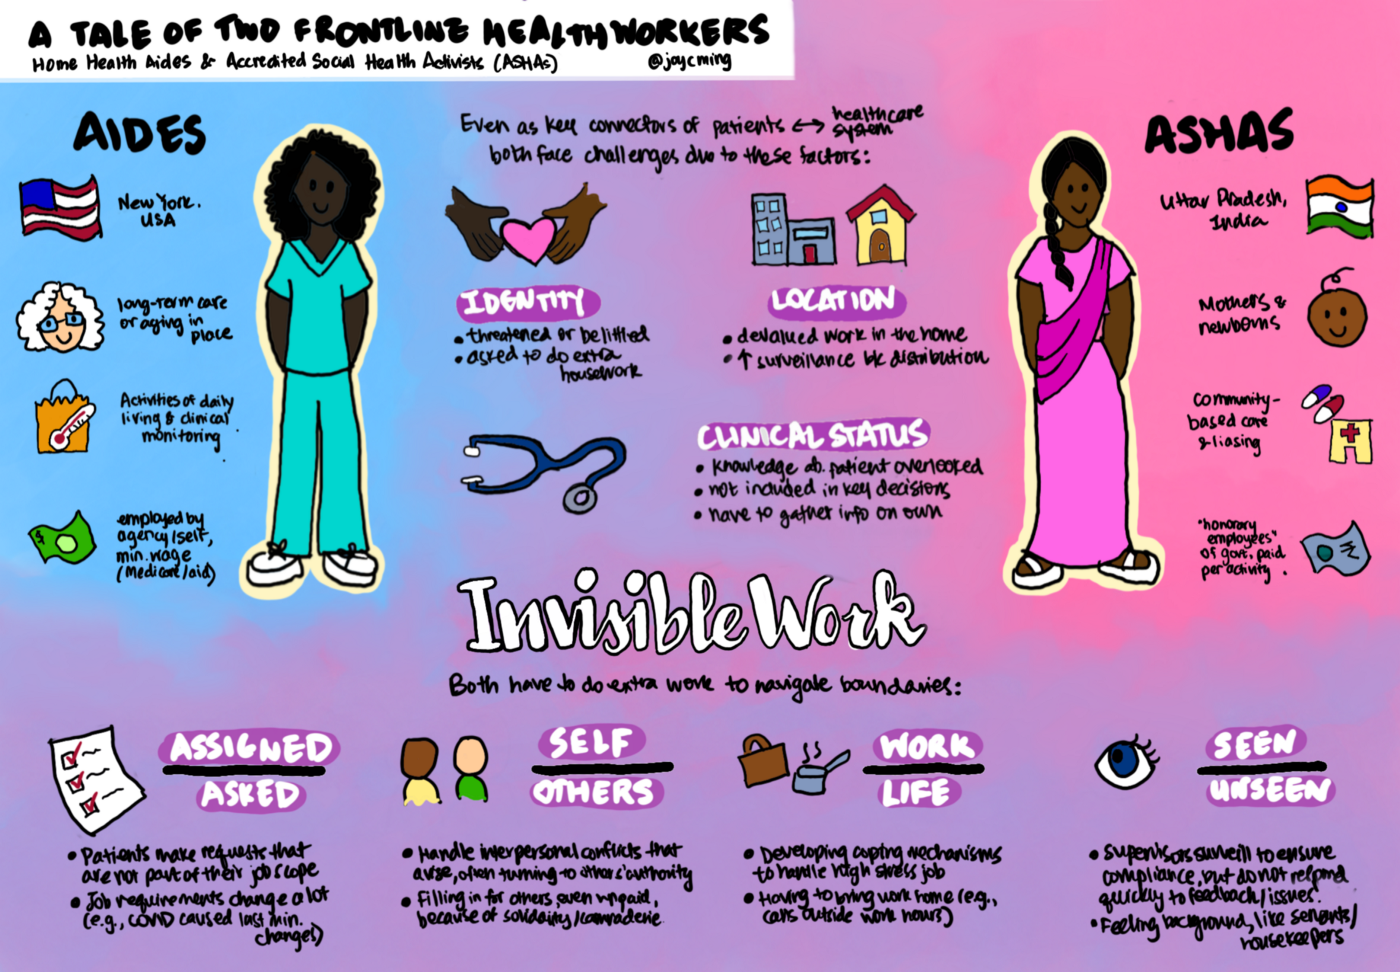 A TALE OF TWO FRONTLINE HEALTH WORKERS
Home Health Aides & Accredited Social Health Activists (ASHAs)
@joycming
AIDES
New York.
USA
long-term care
or aging in
place
Activities of daily
living & clinical
monitoring
employed by
agency/self,
min. wage
(Medicare/aid)
Even as key connectors of patients ↔ healthcare
system
both face challenges due to these factors:
IDENTITY
• threatened or belittled
• asked to do extra
housework
LOCATION
• devalued work in the home
• ↑ surveillance b/c distribution
CLINICAL STATUS
• knowledge ab. patient overlooked
• not included in key decisions
• have to gather info on own
ASHAS
Uttar Pradesh,
India
Mothers &
newborns
Community-
based care
& liasing
"honorary
employees"
of govt, paid
per activity.
Invisible Work
Both have to do extra work to navigate boundaries:
ASSIGNED
ASKED
• Patients make requests that
are not part of their job scope
• Job requirements change a lot
(e.g., COVID caused last min.
changes)
SELF
OTHERS
• Handle interpersonal conflicts that
arise, often turning to others' authority
• Filling in for others, even unpaid,
because of solidarity/camraderie
WORK
LIFE
• Developing coping mechanisms
to handle high stress job
• Having to bring work home (e.g.,
calls outside work hours)
SEEN
UNSEEN
• Supervisors surveill to ensure
compliance, but do not respond
quickly to feedback/issues.
• Feeling background, like servants/
housekeepers